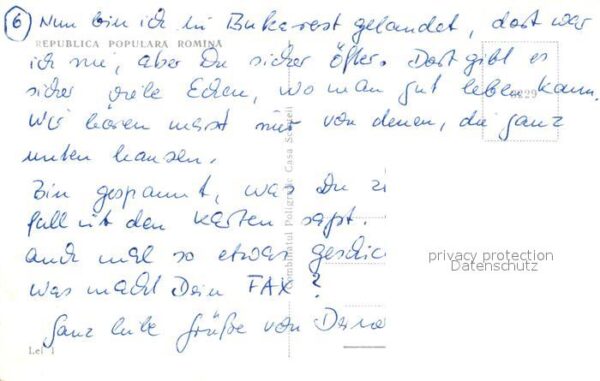 6 Nun bin ich in Bukarest gelandet, dort war
REPUBLICA POPULARA ROMINA
ich nie, aber Du sicher öfter. Dort gibt es
sicher viele Ecken, wo man gut leben kann.
Wir hören meist nur von denen, die ganz
unten hausen.
Bin gespannt, was Du zu
fall mit den Karten sagst.
auch mal so etwas geschic
was macht Dein FAX?
Ganz liebe Grüße von
Combinatul Poligrafic Casa Scînteii
privacy protection
Datenschutz
Lei 1